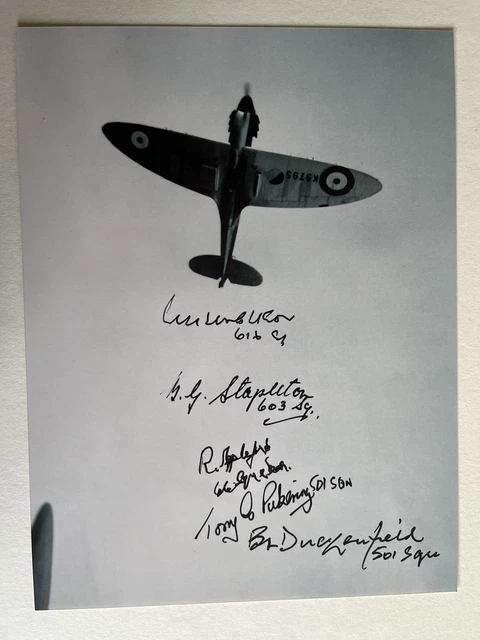 K9795
616 Sq
B.G. Stapleton
603 Sq.
R. Appleford
66 Squadron.
Tony G Pickering 501 SQN
B Duckenfield
501 Squ